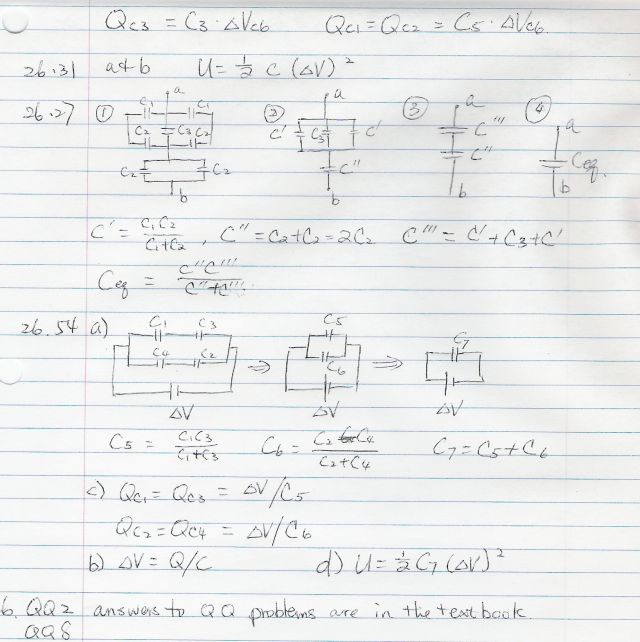 Qc3 = C3 · ΔVcb Qc1 = Qc2 = C5 · ΔVcb.
26.31 a+b U = ½ C (ΔV)²
26.27 ① a C1 C1 C2 C3 C2 C2 C2 b ② a C' C3 C' C" b ③ a C''' C" b ④ a Ceq. b
C' = C1C2/C1+C2 , C" = C2+C2 = 2C2 C''' = C'+C3+C'
Ceq = C"C'''/C"+C'''
26.54 a) C1 C3 C4 C2 ΔV ⇒ C5 C6 ΔV ⇒ C7 ΔV
C5 = C1C3/C1+C3 C6 = C2 C4/C2+C4 C7 = C5+C6
c) Qc1 = Qc3 = ΔV/C5
Qc2 = Qc4 = ΔV/C6
b) ΔV = Q/C d) U = ½ C7 (ΔV)²
6. QQ2 answers to QQ problems are in the textbook.
QQ8